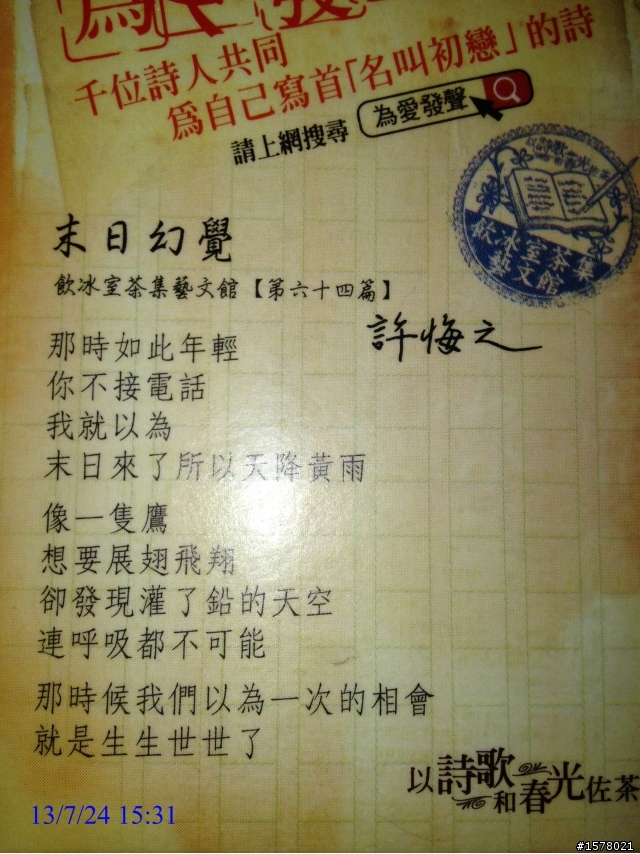 千位詩人共同
為自己寫首「名叫初戀」的詩
請上網搜尋 為愛發聲
飲冰室茶集
藝文館
末日幻覺
飲冰室茶集藝文館【第六十四篇】
許悔之
那時如此年輕
你不接電話
我就以為
末日來了所以天降黃雨
像一隻鷹
想要展翅飛翔
卻發現灌了鉛的天空
連呼吸都不可能
那時候我們以為一次的相會
就是生生世世了
以詩歌和春光佐茶
13/7/24 15:31
#1578021